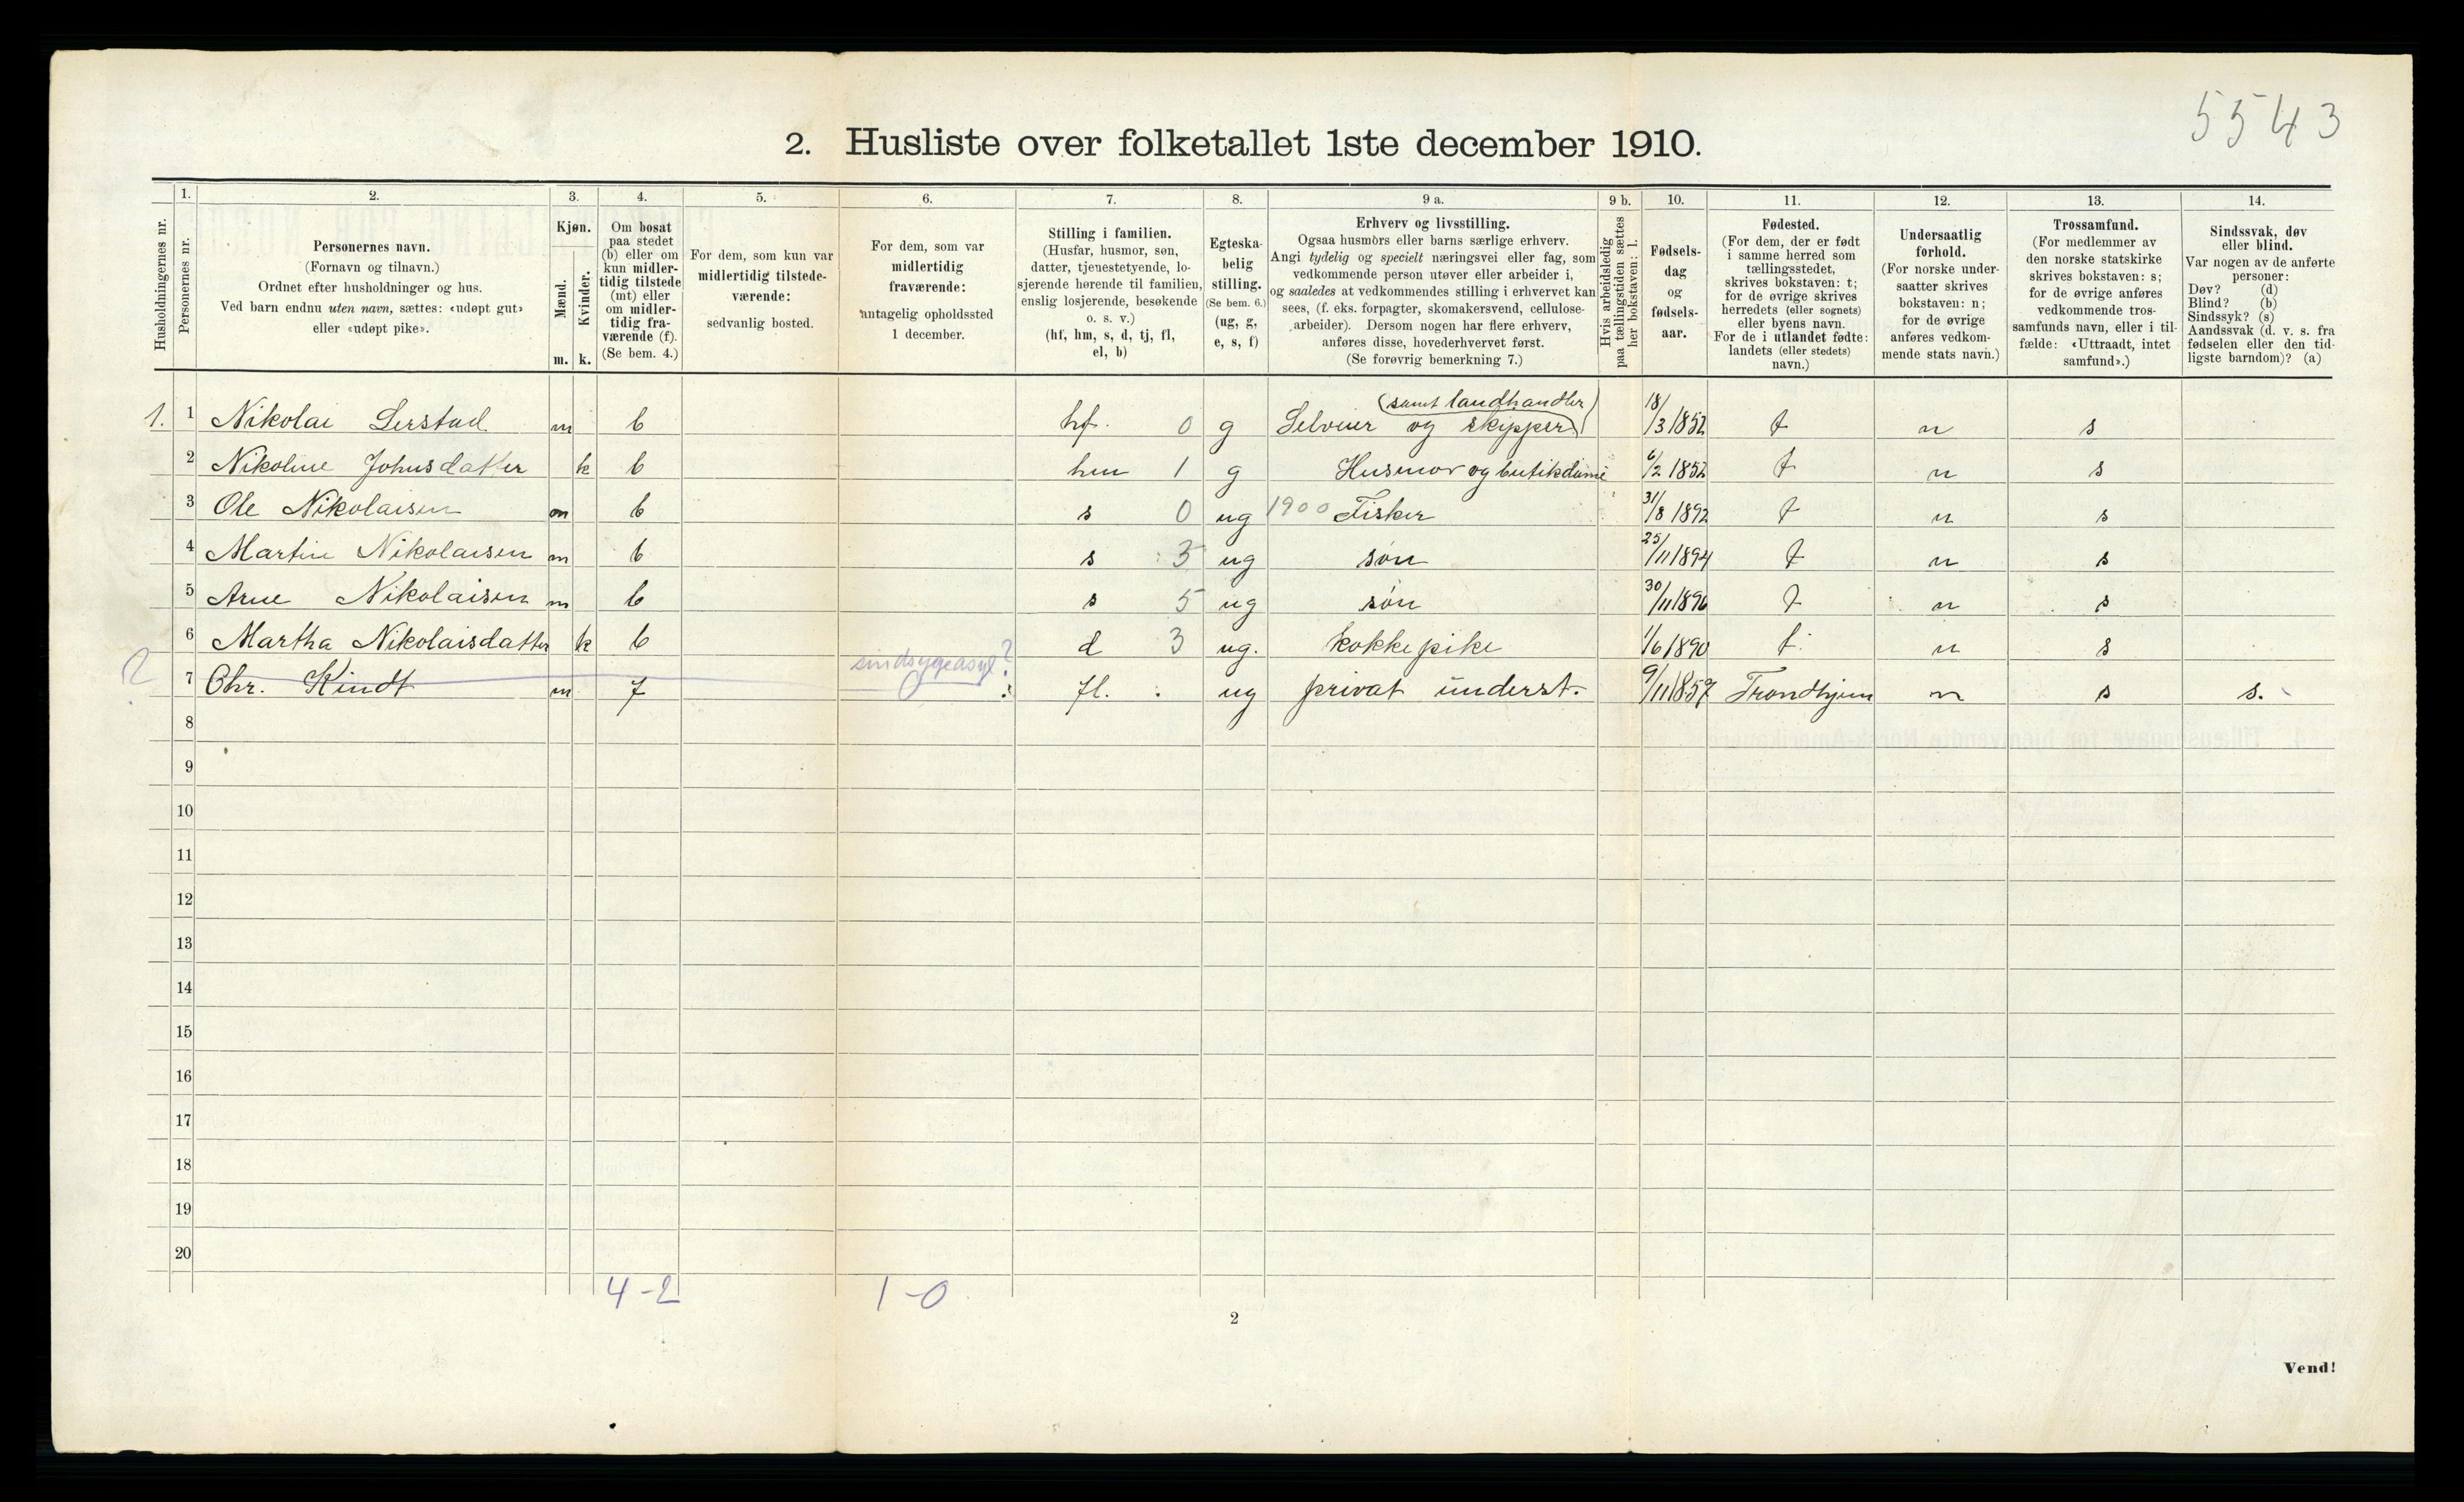 5543
2. Husliste over folketallet 1ste december 1910.
Husholdningernes nr.
1. Personernes nr.
2. Personernes navn. (Fornavn og tilnavn.) Ordnet efter husholdninger og hus. Ved barn endnu uten navn, sættes: «udøpt gut» eller «udøpt pike».
3. Kjøn. Mænd. m. Kvinder. k.
4. Om bosat paa stedet (b) eller om kun midlertidig tilstede (mt) eller om midlertidig fraværende (f). (Se bem. 4.)
5. For dem, som kun var midlertidig tilstedeværende: sedvanlig bosted.
6. For dem, som var midlertidig fraværende: antagelig opholdssted 1 december.
7. Stilling i familien. (Husfar, husmor, søn, datter, tjenestetyende, losjerende hørende til familien, enslig losjerende, besøkende o. s. v.) (hf, hm, s, d, tj, fl, el, b)
8. Egteskabelig stilling. (Se bem. 6.) (ug, g, e, s, f)
9 a. Erhverv og livsstilling. Ogsaa husmors eller barns særlige erhverv. Angi tydelig og specielt næringsvei eller fag, som vedkommende person utøver eller arbeider i, og saaledes at vedkommendes stilling i erhvervet kan sees, (f. eks. forpagter, skomakersvend, cellulosearbeider). Dersom nogen har flere erhverv, anføres disse, hovederhvervet først. (Se forøvrig bemerkning 7.)
9 b. Hvis arbeidsledig paa tællingstiden sættes her bokstaven: l.
10. Fødselsdag og fødselsaar.
11. Fødested. (For dem, der er født i samme herred som tællingsstedet, skrives bokstaven: t; for de øvrige skrives herredets (eller sognets) eller byens navn. For de i utlandet fødte: landets (eller stedets) navn.)
12. Undersaatlig forhold. (For norske undersaatter skrives bokstaven: n; for de øvrige anføres vedkommende stats navn.)
13. Trossamfund. (For medlemmer av den norske statskirke skrives bokstaven: s; for de øvrige anføres vedkommende trossamfunds navn, eller i tilfælde: «Uttraadt, intet samfund».)
14. Sindssvak, døv eller blind. Var nogen av de anførte personer: Døv? (d) Blind? (b) Sindssyk? (s) Aandssvak (d. v. s. fra fødselen eller den tidligste barndom)? (a)
1. 1 Nikolai Lerstad m b hf. 0 g Selveier og skipper (samt landhandler) 18/3 1852 t n s
2 Nikoline Johnsdatter k b hm 1 g Husmor og butikdame 6/2 1852 t n s
3 Ole Nikolaisen m b s 0 ug 1900 Fisker 31/8 1892 t n s
4 Martin Nikolaisen m b s 3 ug søn 25/11 1894 t n s
5 Arne Nikolaisen m b s 5 ug søn 30/11 1896 t n s
6 Martha Nikolaisdatter k b d 3 ug. kokkepike 1/6 1890 t n s
7 Chr. Kindt m f sindsygeasyl? fl. ug privat underst. 9/11 1857 Trondhjem n s s.
8
9
10
11
12
13
14
15
16
17
18
19
20
4-2 1-0
2
Vend!